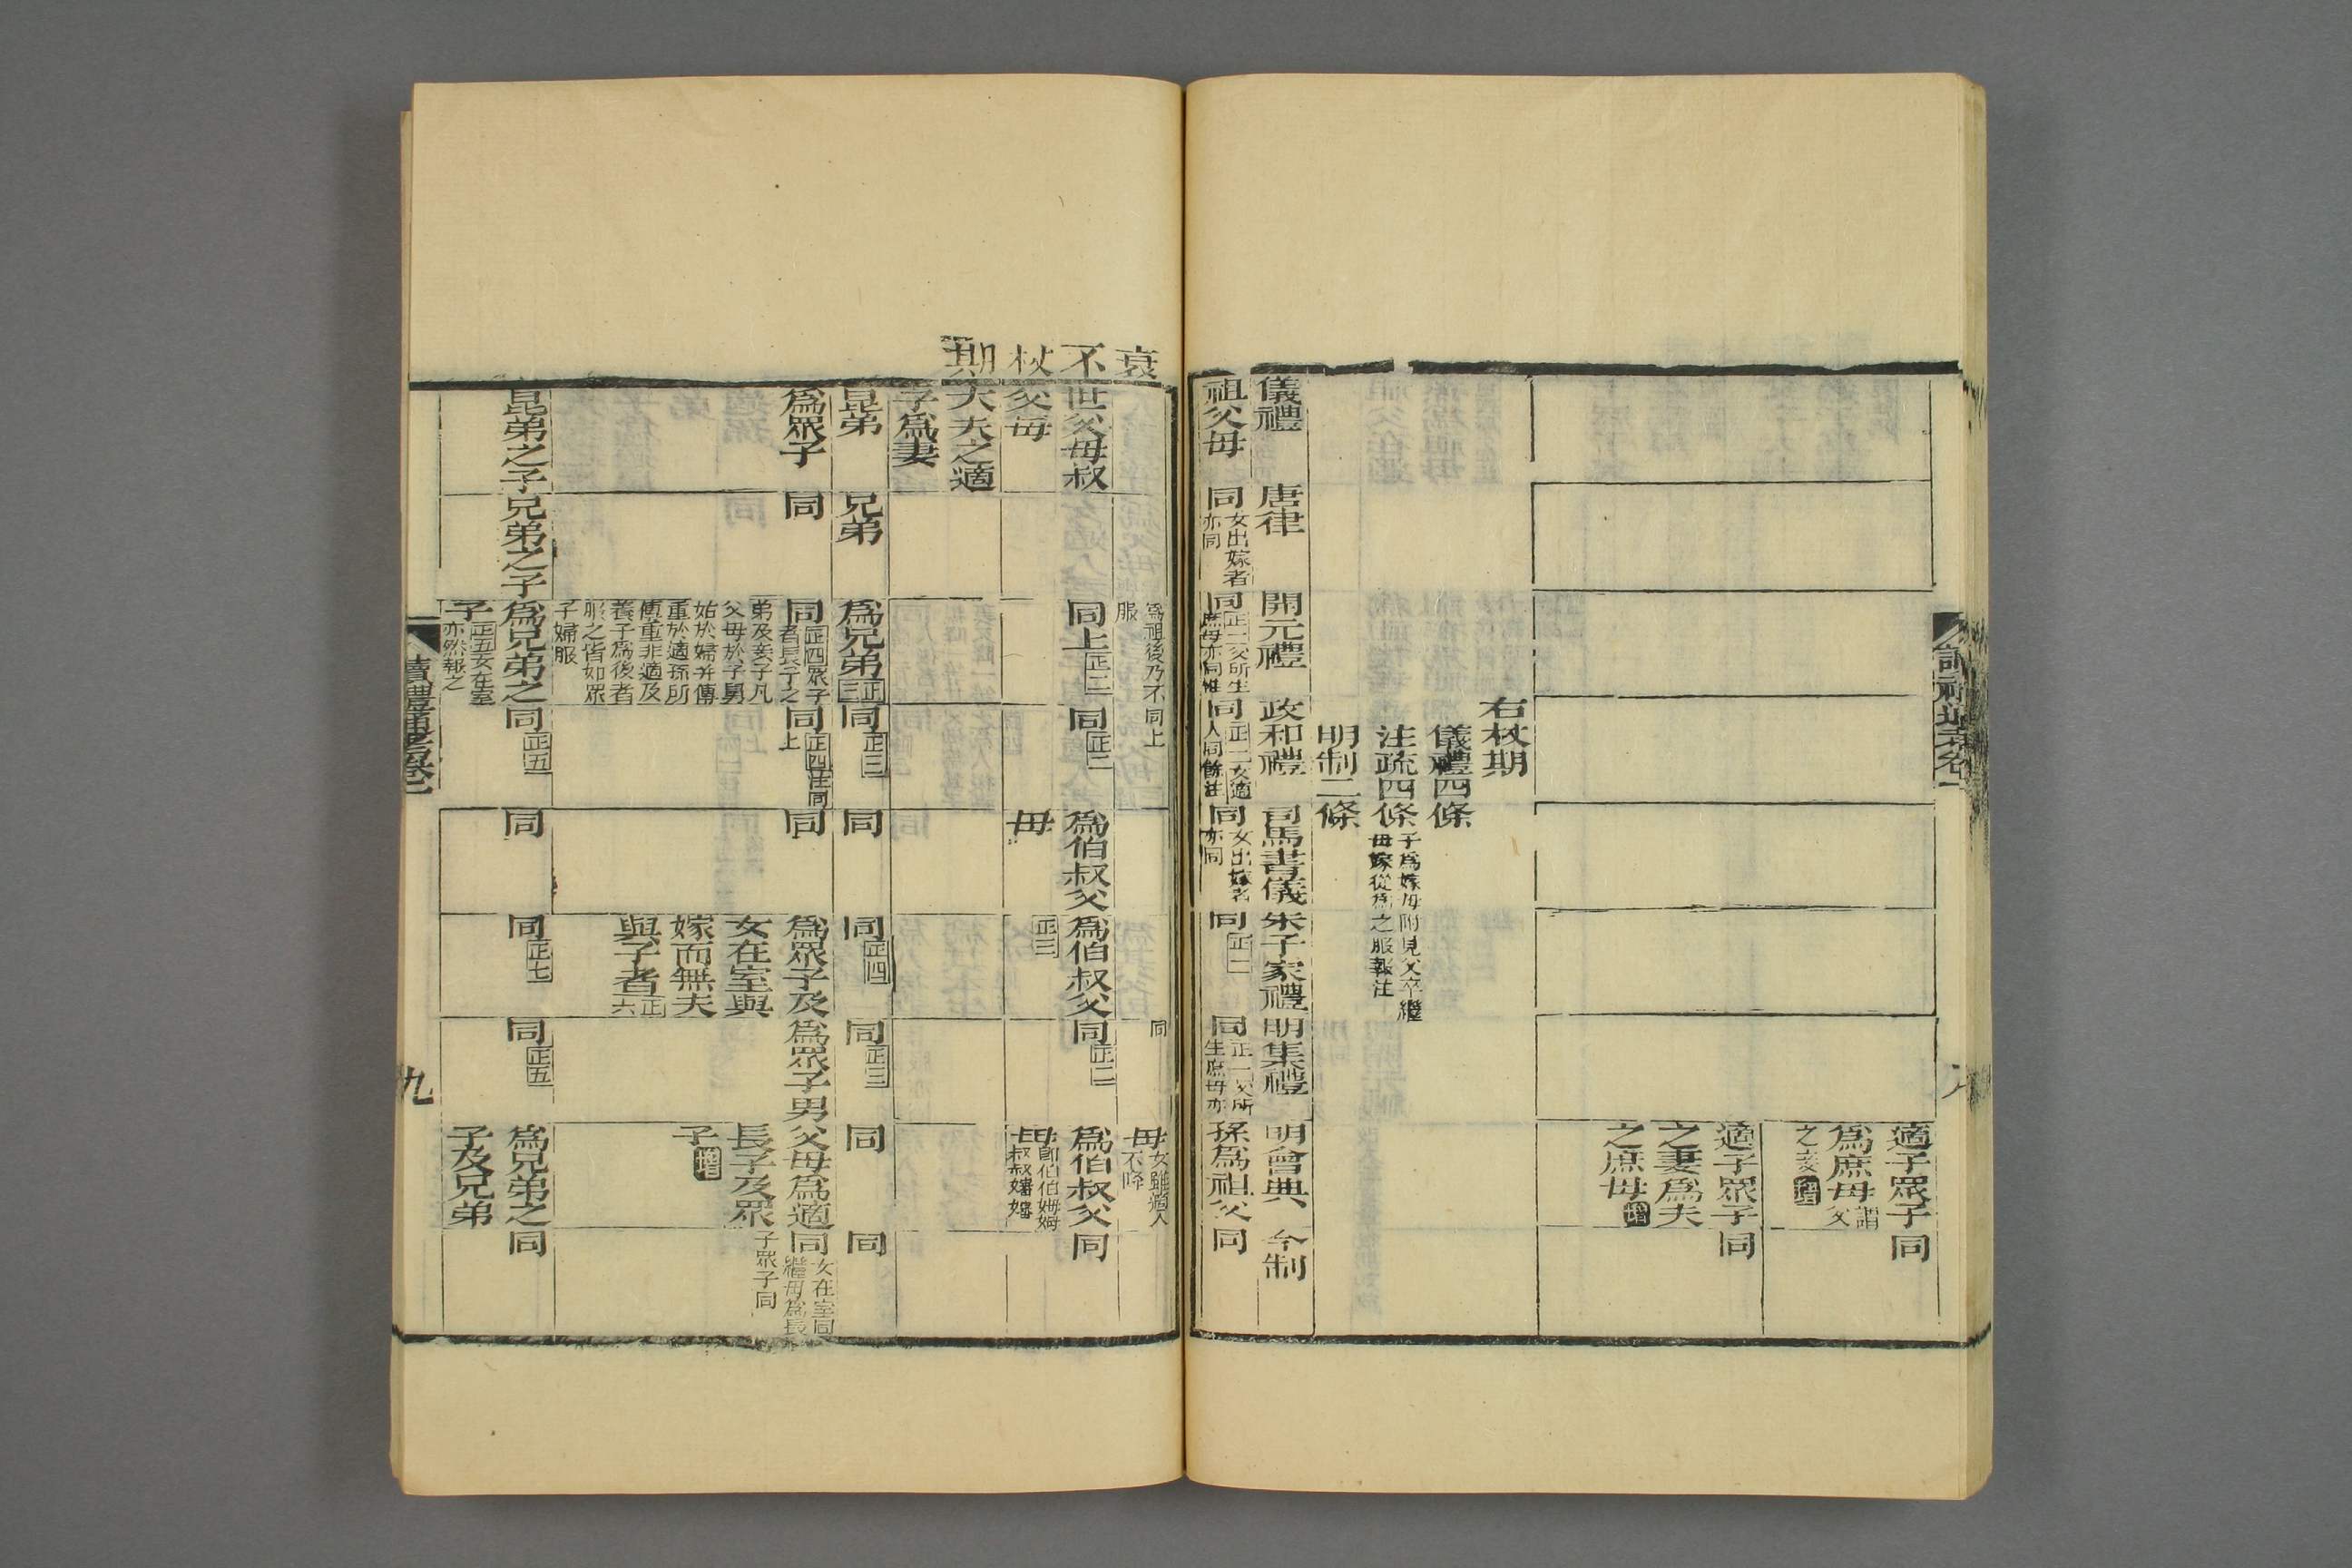 適子眾子
為庶母謂父
之妾增
同
適子眾子
之妻為夫
之庶母增
同
右杖期
儀禮四條
注疏四條子為嫁母附見父卒繼
母嫁從為之服報注
明制二條
儀禮
唐律
開元禮
政和禮
司馬書儀
朱子家禮
明集禮
明會典
今制
祖父母
同女出嫁者
亦同
同正一父所生
庶母亦同惟
同正一女適
人同餘注
同女出嫁者
亦同
同正一
同正一父所
生庶母亦
孫為祖父
同
衰不杖期
為祖後乃不
服
同上
同
母女雖適人
不降
世父母叔
父母
同上正二
同正二
為伯叔父
母
為伯叔父
正三
同正二
為伯叔父
母即伯伯姆姆
叔叔嬸嬸
同
大夫之適
子為妻
昆弟
兄弟
為兄弟正三
同正三
同
同正四
同正三
同
同
為眾子
同
同正四眾子
者長子之
弟及妾子凡
父母於子舅
姑於婦并傳
重於適孫所
傳重非適及
養子為後者
服之皆如眾
子婦服
同正四注同
上
同
為眾子及
女在室與
嫁而無夫
與子者正六
為眾子男
父母為適
長子及眾
子增
同女在室同
繼母為長
子眾子同
昆弟之子
兄弟之子
為兄弟之
子正五女在室
亦然報之
同正五
同
同正七
同正五
為兄弟之
子及兄弟
同
讀禮通考卷一
九